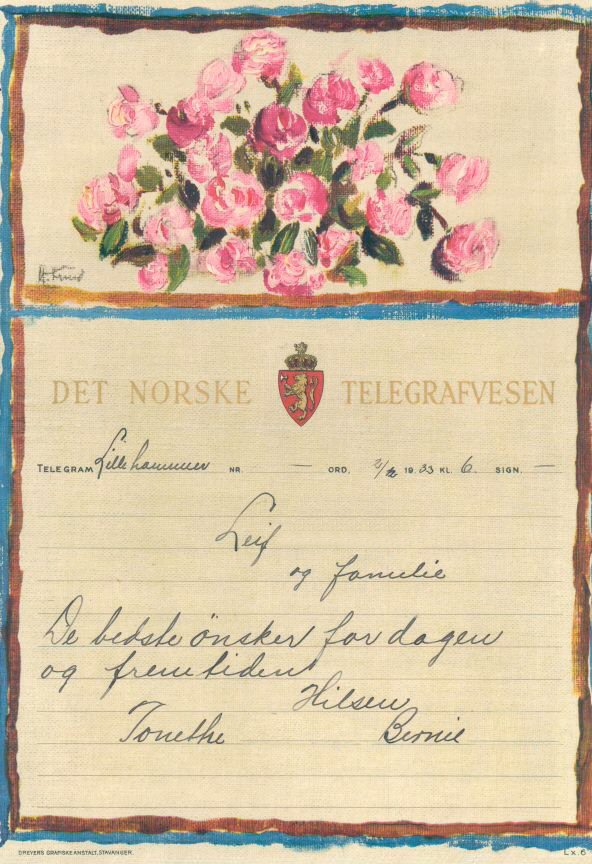 DET NORSKE TELEGRAFVESEN
TELEGRAM Lillehammer NR. — ORD. 19 33 KL. 6. SIGN. —
Leif
og familie
De bedste ønsker for dagen
og fremtiden
Hilsen
Tonethe Bernie
DREYERS GRAFISKE ANSTALT, STAVANGER.
Lx.6